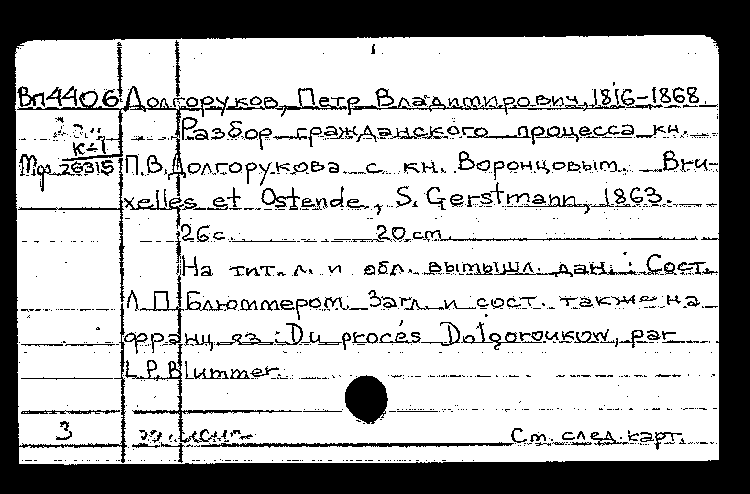 Вп4406 Долгоруков, Петр Владимирович, 1816-1868.
Разбор гражданского процесса кн.
К-1
26315 П.В.Долгорукова с кн. Воронцовым. Bru-
xelles et Ostende, S. Gerstmann, 1863.
26с. 20 см.
На тит. л. и обл. вымышл. дан.: Сост.
Л.П. Блюммером. Загл. и сост. также на
франц. яз.: Du procés Dolgoroukow, par
L.P. Blummer.
3 См. след. карт.